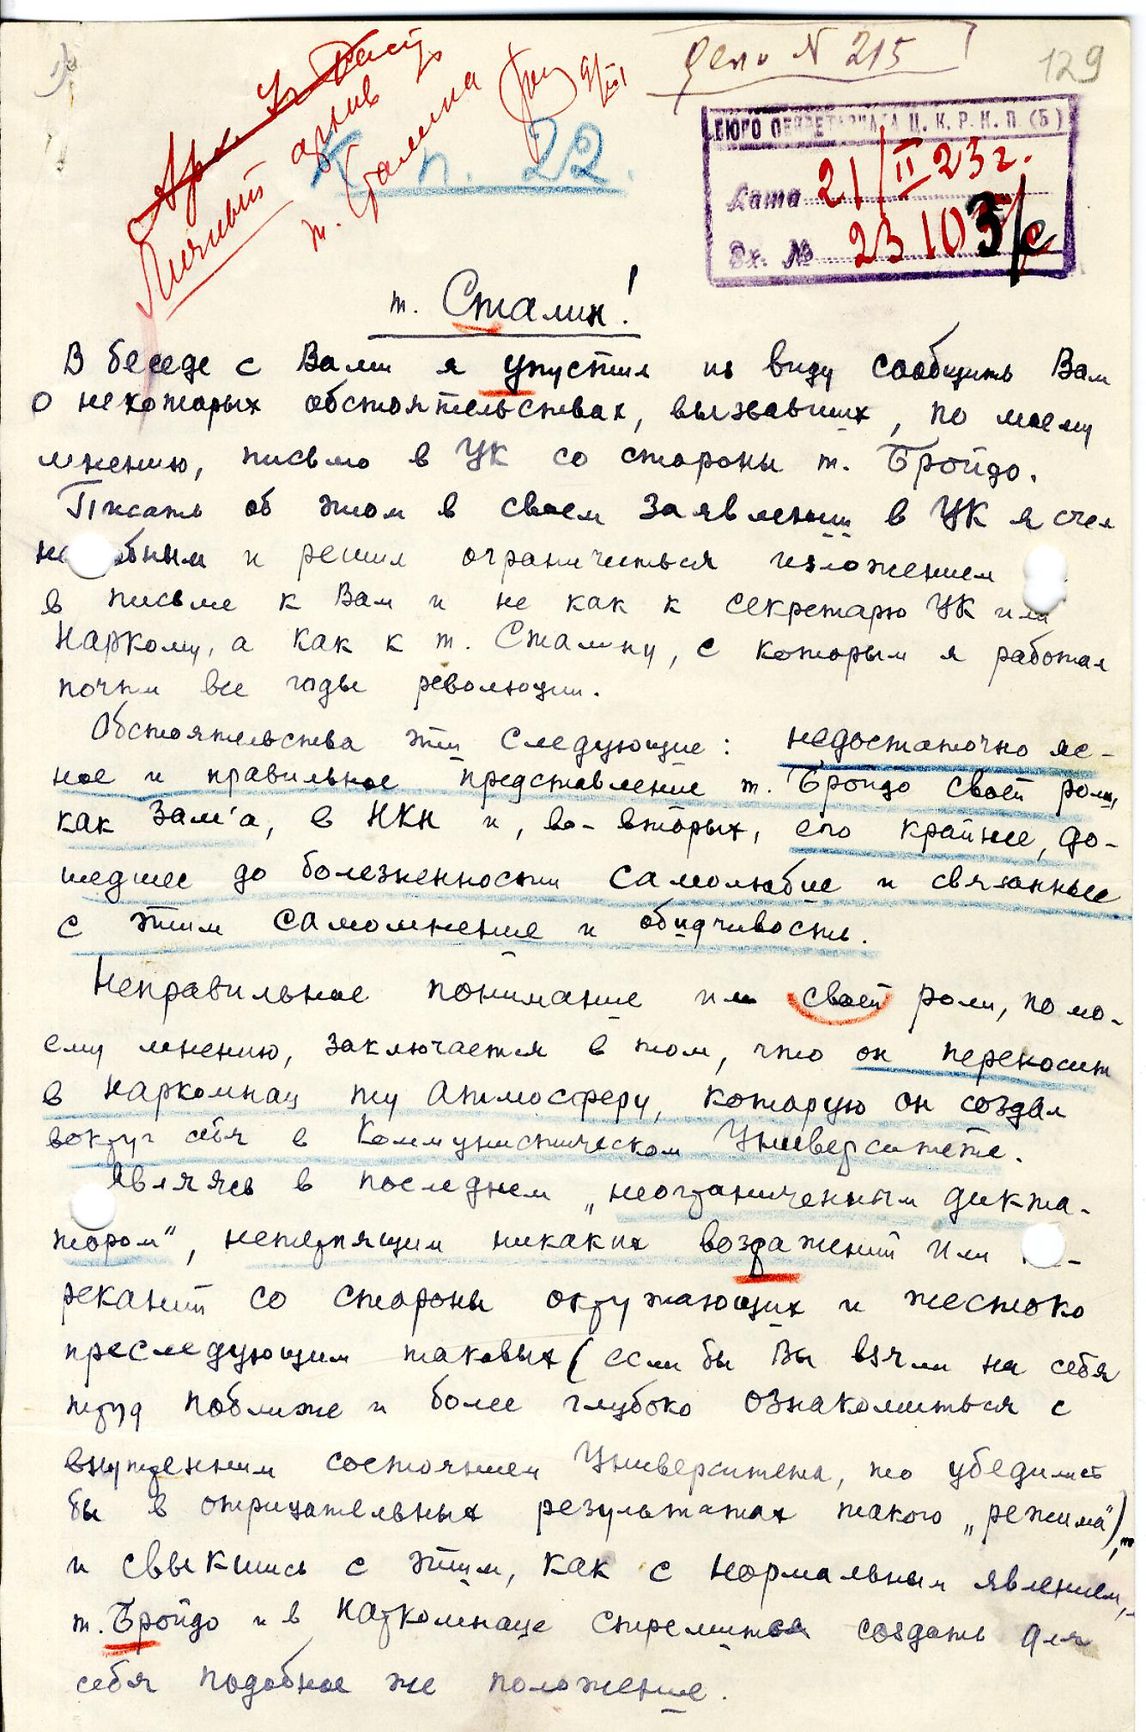 Дело N 215
129
Личный архив
т. Сталина
п. 22.
БЮРО СЕКРЕТАРИАТА Ц. К. Р. К. П. (Б)
Дата 21/II 23 г.
Вх. № 23103/с
т. Сталин!
В беседе с Вами я упустил из виду сообщить Вам
о некоторых обстоятельствах, вызвавших, по моему
мнению, письмо в ЦК со стороны т. Бройдо.
Писать об этом в своем заявлении в ЦК я счел
неу бным и решил ограничиться изложением
в письме к Вам и не как к секретарю ЦК или
Наркому, а как к т. Сталину, с которым я работал
почти все годы революции.
Обстоятельства эти следующие: недостаточно яс-
ное и правильное представление т. Бройдо своей роли,
как Зам'а, в НКН и, во-вторых, его крайнее, до-
шедшее до болезненности самолюбие и связанные
с этим самомнение и обидчивость.
Неправильное понимание им своей роли, по мо-
ему мнению, заключается в том, что он переносит
в наркомнац ту атмосферу, которую он создал
вокруг себя в Коммунистическом Университете.
Являясь в последнем „неограниченным дикта-
тором", нетерпящим никаких возражений или -
реканий со стороны окружающих и жестоко
преследующим таковых (если бы Вы взяли на себя
труд поближе и более глубоко ознакомиться с
внутренним состоянием Университета, то убедились
бы в отрицательных результатах такого „режима"),
и свыкшись с этим, как с нормальным явлением,
т. Бройдо и в Наркомнаце стремится создать для
себя подобное же положение.